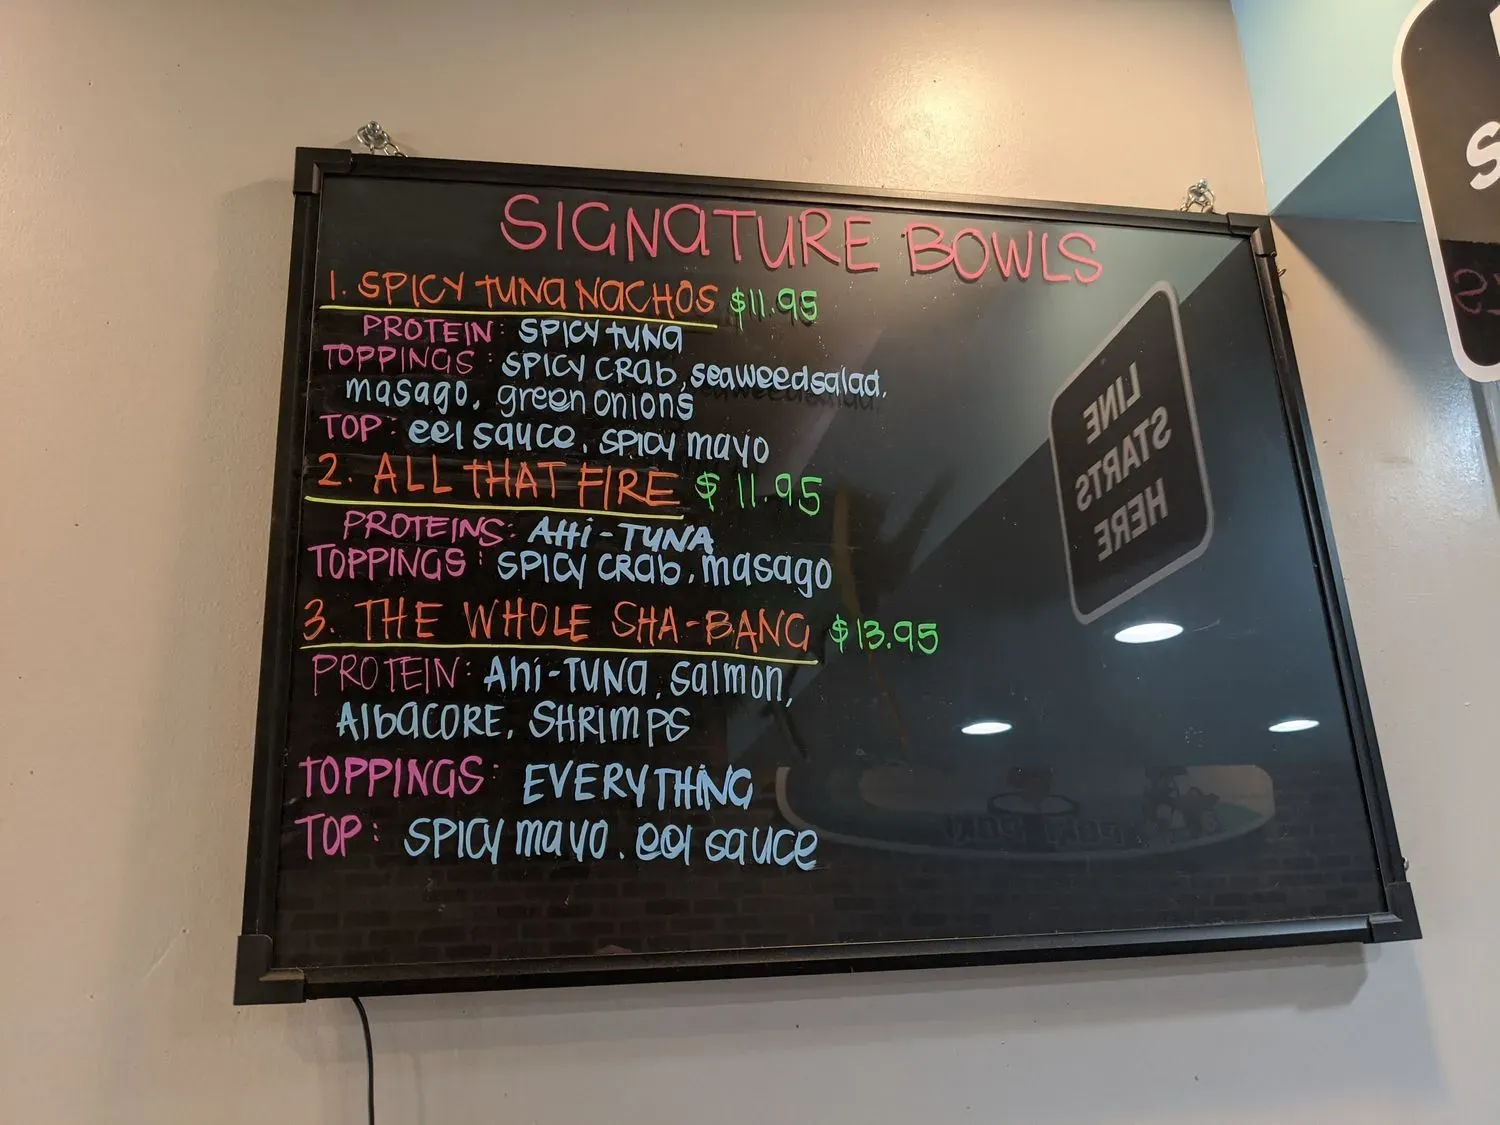 SIGNATURE BOWLS
1. SPICY TUNA NACHOS $11.95
PROTEIN: SPICY TUNA
TOPPINGS: SPICY CRAB, seaweed salad,
masago, green onions
TOP: eel sauce, SPICY mayo
2. ALL THAT FIRE $11.95
PROTEINS: AHi-TUNA
TOPPINGS: SPICY CRAB, masago
3. THE WHOLE SHA-BANG $13.95
PROTEIN: Ahi-TUNA, Salmon,
AlbaCORE, SHRIMPS
TOPPINGS: EVERYTHING
TOP: SPICY mayo, eel sauce
LINE
STARTS
HERE